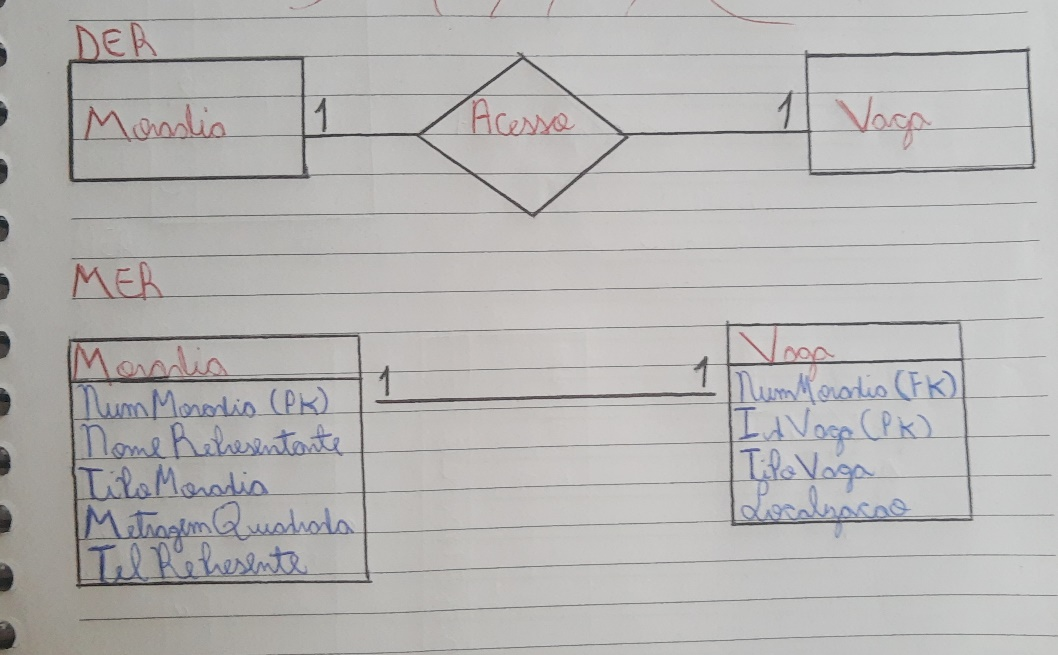 DER
Moradia
1
Acessa
1
Vaga
MER
Moradia
NumMoradia (PK)
NomeRepresentante
TipoMoradia
MetragemQuadrada
TelRepresente
1
1
Vaga
NumMoradia (FK)
IdVaga (PK)
TipoVaga
Localizacao